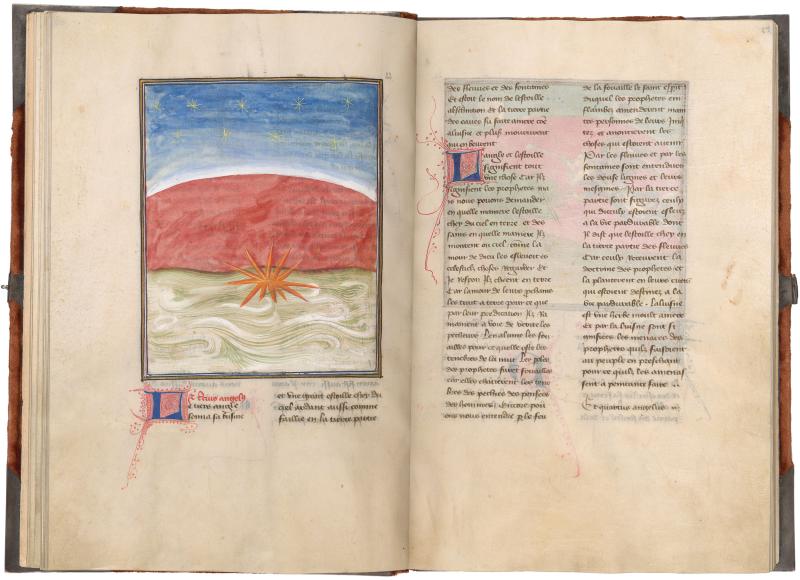 Et tercius angelus
Le tiers angle
sonna sa busine
et une grant estoille chey du
ciel ardant aussi comme
faille en la tierce partie
des fleuves et des fontaines
Et estoit le nom de lestoille
absinction de la tierce partie
des eaues fu faite amere co
aluisne et plus moururent
qui en beurent
Langle et lestoille
signifient tout
une chose Car ilz
signifient les prophetes
mais nous pouons demander
en quelle maniere lestoille
chey du ciel en terre et
en quelle maniere ilz
montent ou ciel comme la
mour de dieu les eslevoit es
celestielz choses regarder Et
Je respon Ilz cheent en terre
Car lamour de leurs prosmes
les trait a terre pour ce que
par leur predication ilz
a voie de verite les
pecheurs
pour ce quelle oste les
tenebres de la nuit Les
des prophetes furent
car elles les
bres des pechies des pensees
des hommes Encore pou
ons nous entendre par le feu
de la fouaille le saint esprit
duquel les prophetes en
flambez amenderent main
tes personnes de leurs
et anoncerent les
choses qui estoient avenir
Par les fleuves et par les
fontaines sont entendues
les douse lignes et leurs
mesmes Par la tierce
partie sont figurez ceulz
qui diceulz estoient esleuz
a la vie pardurable dont
Il dist que lestoille chey en
la tierce partie des fleuves
Car ceulz receurent la
doctrine des prophetes et
la planterent en leurs cuers
qui estoient destinez a la
vie pardurable Laluisne
est une herbe moult amere
Et par laluisne sont si
gnifiees les menaces des
prophetes quilz faisoient
au peuple en preschant
pour ce quilz les amenas
sent a penitance faire
Et quartus angelus